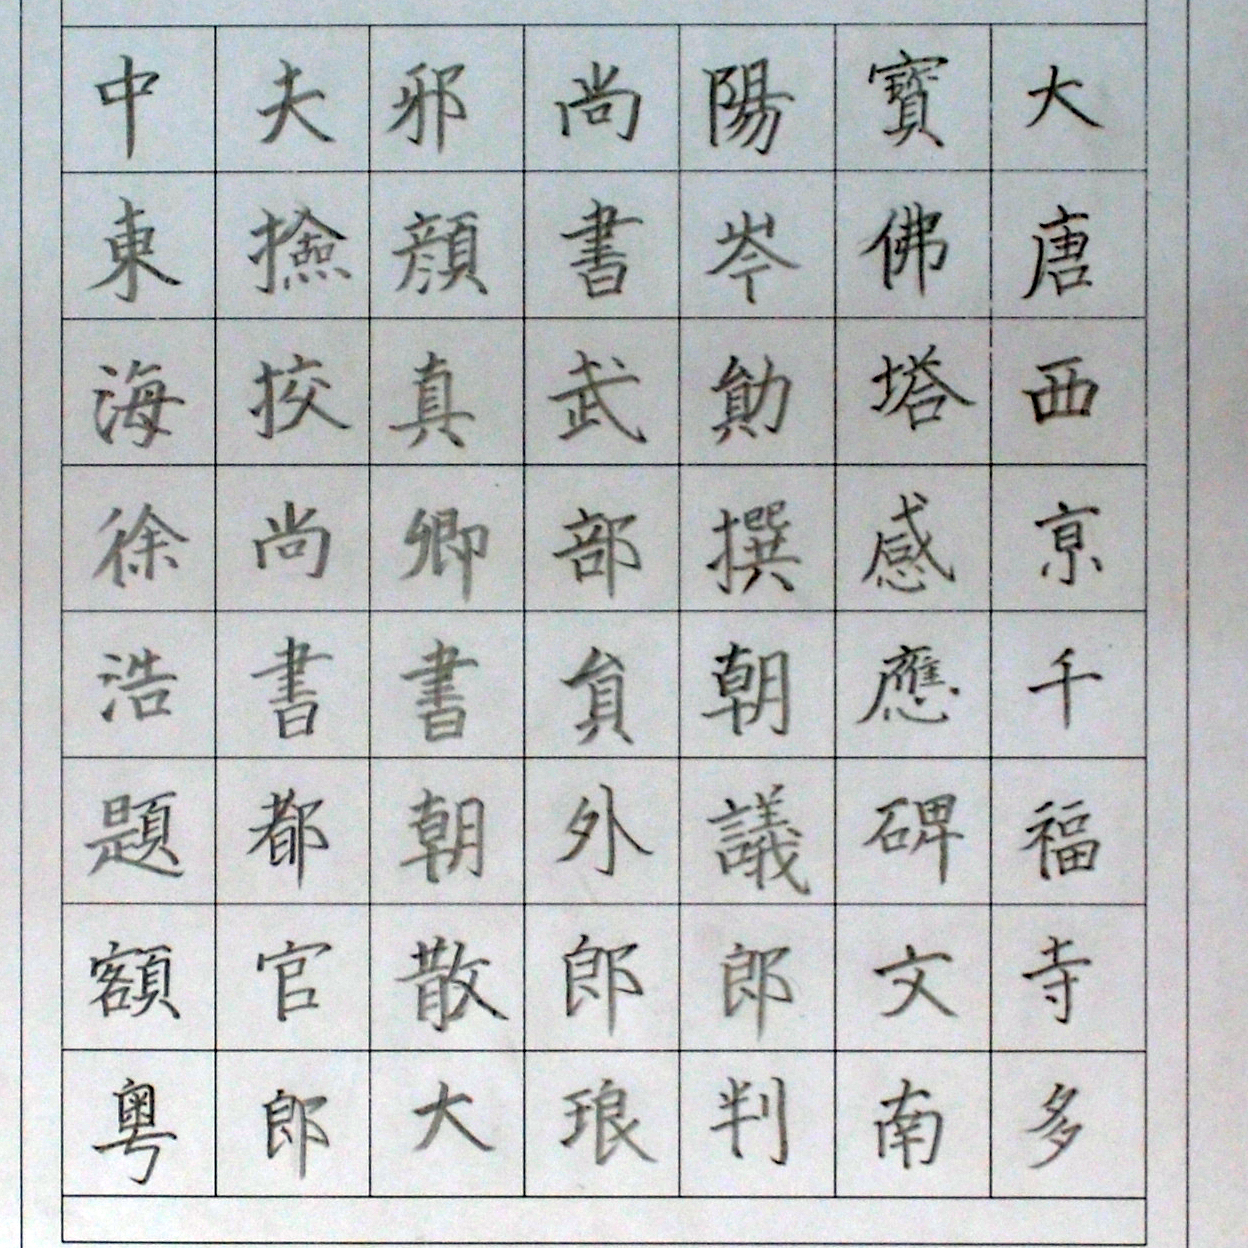 大唐西京千福寺多
寶佛塔感應碑文南
陽岑勛撰朝議郎判
尚書武部貟外郎琅
邪顏真卿書朝散大
夫撿挍尚書都官郎
中東海徐浩題額粤